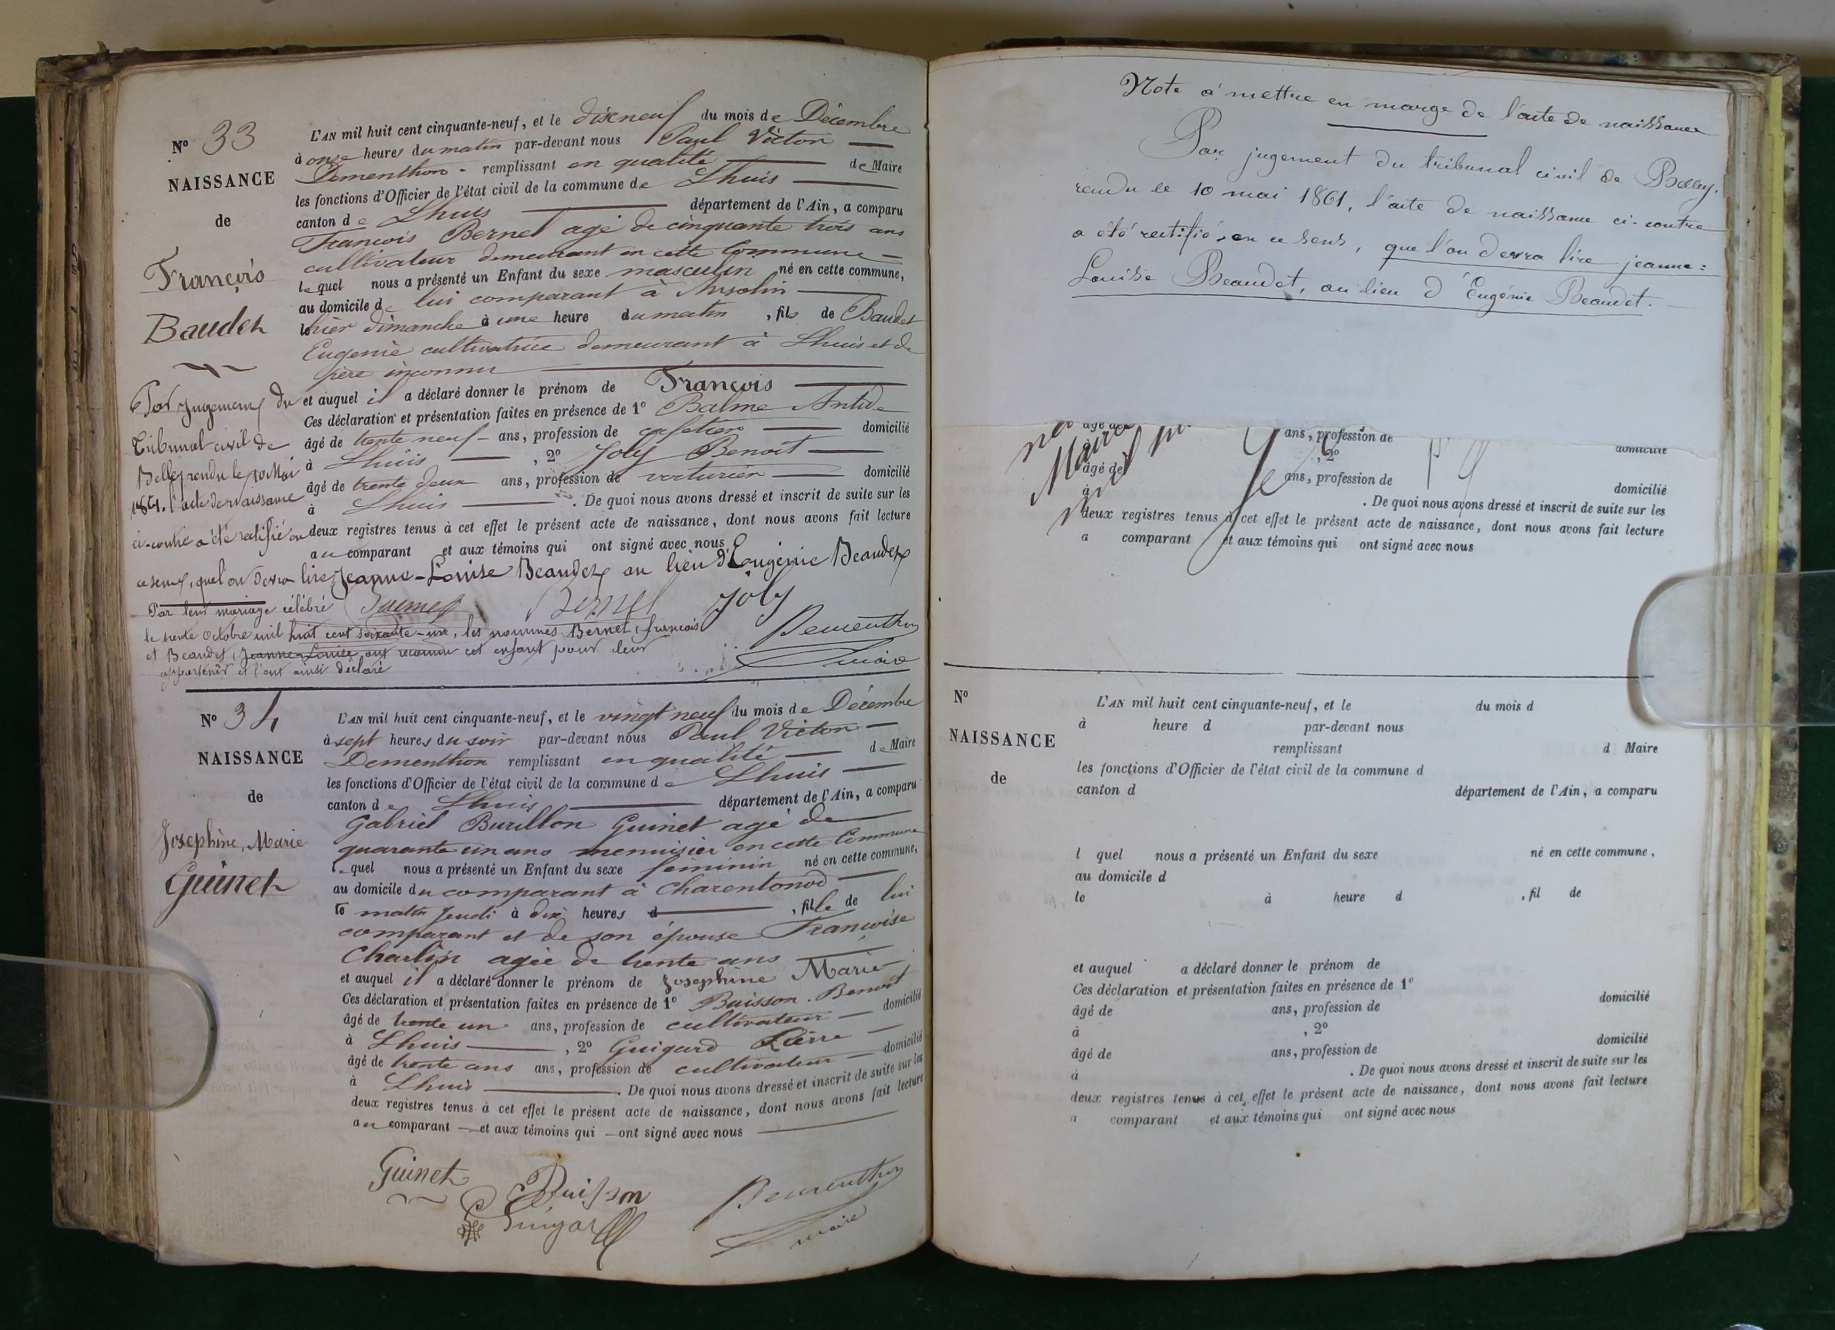 No 33
NAISSANCE
de
François
Baudet
L'AN mil huit cent cinquante-neuf, et le dix neuf du mois de Décembre
à onze heures du matin par-devant nous Paul Victor
Dementhon remplissant en qualité de Maire
les fonctions d'Officier de l'état civil de la commune de Lhuis
canton de Lhuis département de l'Ain, a comparu
François Bernet agé de cinquante trois ans
cultivateur demeurant en cette Commune
lequel nous a présenté un Enfant du sexe masculin né en cette commune,
au domicile de lui comparant à Ansolin
le hier dimanche à une heure du matin, fils de Baudet
Eugénie cultivatrice demeurant à Lhuis et de
père inconnu
et auquel il a déclaré donner le prénom de François
Ces déclaration et présentation faites en présence de 1o Balme Antide
âgé de trente neuf ans, profession de cafetier domicilié
à Lhuis, 2o Joly Benoit
âgé de trente deux ans, profession de voiturier domicilié
à Lhuis. De quoi nous avons dressé et inscrit de suite sur les
deux registres tenus à cet effet le présent acte de naissance, dont nous avons fait lecture
au comparant et aux témoins qui ont signé avec nous
Par Jugement du
Tribunal civil de
Belley rendu le 10 Mai
1861, l'acte de Naissance
ci-contre a été rectifié en
ce sens, que l'on devra lire Jeanne-Louise Beaudet au lieu d'Eugénie Beaudet
Bernet Joly
Par leur mariage célébré
le trente Octobre mil huit cent soixante-une, les nommés Bernet, françois
et Beaudet, Jeanne-Louise, ont reconnu cet enfant pour leur
appartenir et l'ont ainsi déclaré
Dementhon
maire
No 34
NAISSANCE
de
Josephine, Marie
Guinet
L'AN mil huit cent cinquante-neuf, et le vingt neuf du mois de Décembre
à sept heures du soir par-devant nous Paul Victor
Dementhon remplissant en qualité de Maire
les fonctions d'Officier de l'état civil de la commune de Lhuis
canton de Lhuis département de l'Ain, a comparu
Gabriel Burillon Guinet agé de
quarante un ans menuisier en cette Commune
lequel nous a présenté un Enfant du sexe féminin né en cette commune,
au domicile du comparant à Charentonod
le matin Jeudi à dix heures d, fille de lui
comparant et de son épouse Françoise
Charlin agée de trente ans
et auquel il a déclaré donner le prénom de Josephine Marie
Ces déclaration et présentation faites en présence de 1o Buisson Benoit
âgé de trente un ans, profession de cultivateur domicilié
à Lhuis, 2o Guigard Pierre
âgé de trente ans ans, profession de cultivateur domicilié
à Lhuis. De quoi nous avons dressé et inscrit de suite sur les
deux registres tenus à cet effet le présent acte de naissance, dont nous avons fait lecture
au comparant et aux témoins qui ont signé avec nous
Guinet Buisson Dementhon
Guigard maire
Note à mettre en marge de l'acte de naissance
Par jugement du tribunal civil de Belley,
rendu le 10 mai 1861, l'acte de naissance ci-contre
a été rectifié en ce sens, que l'on devra lire jeanne=
Louise Beaudet, au lieu d'Eugénie Beaudet.
ans, profession de
, 2o domicilié
âgé de ans, profession de
domicilié
à . De quoi nous avons dressé et inscrit de suite sur les
deux registres tenus à cet effet le présent acte de naissance, dont nous avons fait lecture
a comparant et aux témoins qui ont signé avec nous
No
NAISSANCE
de
L'AN mil huit cent cinquante-neuf, et le du mois d
à heure d par-devant nous
remplissant d Maire
les fonctions d'Officier de l'état civil de la commune d
canton d département de l'Ain, a comparu
l quel nous a présenté un Enfant du sexe né en cette commune,
au domicile d
le à heure d, fil de
et auquel a déclaré donner le prénom de
Ces déclaration et présentation faites en présence de 1o
âgé de ans, profession de domicilié
à, 2o
âgé de ans, profession de domicilié
à . De quoi nous avons dressé et inscrit de suite sur les
deux registres tenus à cet effet le présent acte de naissance, dont nous avons fait lecture
a comparant et aux témoins qui ont signé avec nous